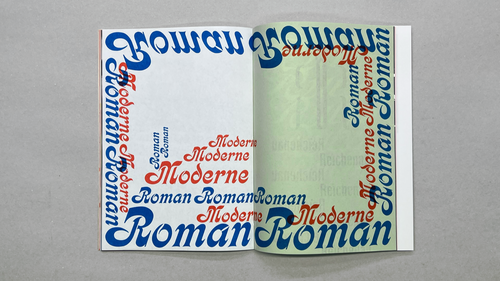 Roman
Roman
Moderne
Roman
Moderne
Roman
Roman
Moderne
Moderne
Moderne
Roman Roman
Moderne
Roman
Roman
Moderne
Roman
Moderne
Roman
Moderne
Roman
Roman
Moderne
Roman